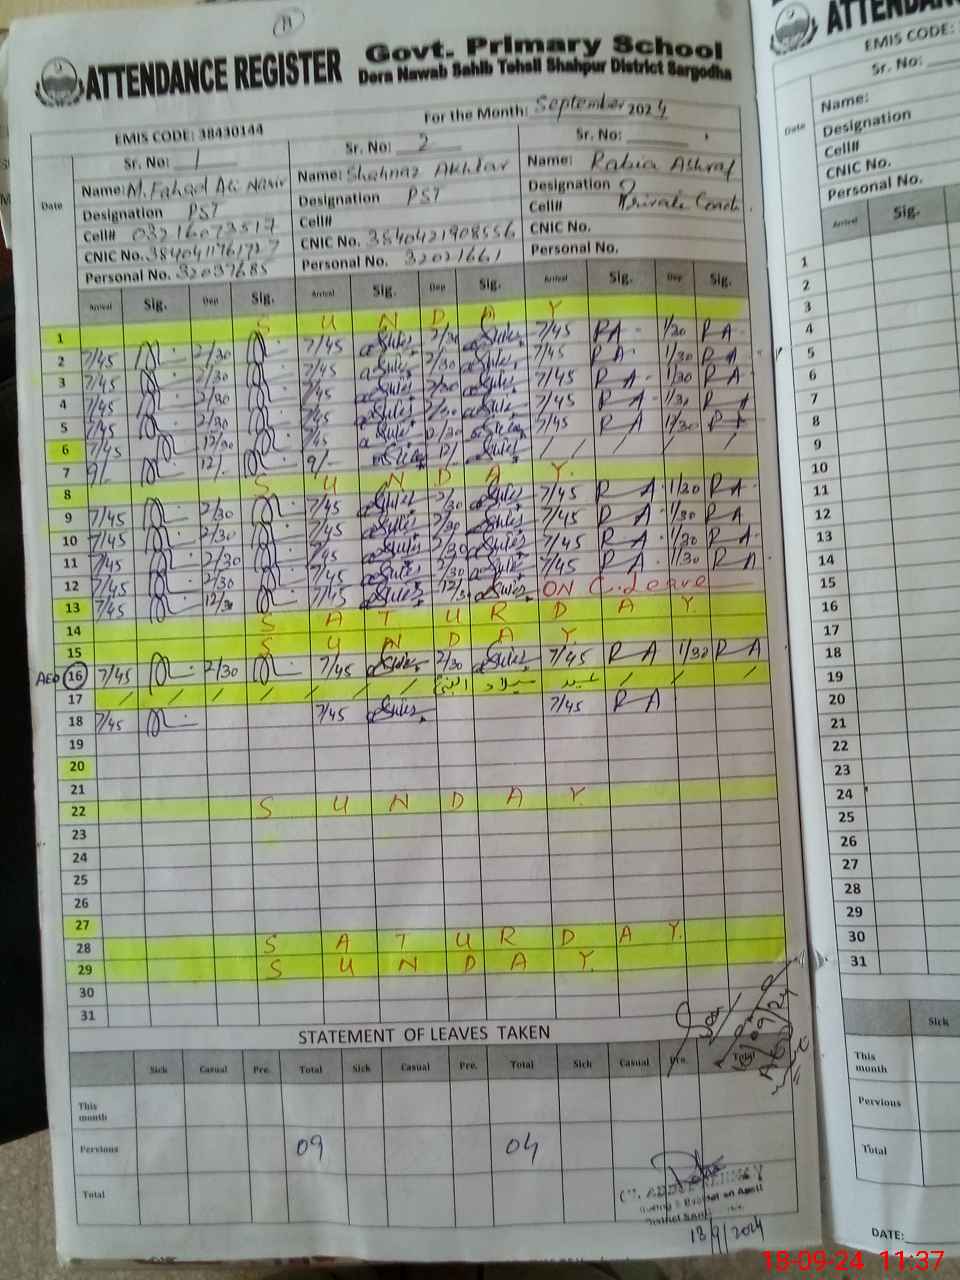 11
ATTENDANCE REGISTER Govt. Primary School
Dera Nawab Sahib Tehsil Shahpur District Sargodha
EMIS CODE: 38430144 For the Month: September 2024
Sr. No: 1 Sr. No: 2 Sr. No:
Date
Name: M. Fahad Ali Nasir Name: Shahnaz Akhtar Name: Rabia Ashraf
Designation PST Designation PST Designation
Cell# 03216073517 Cell# Private Coach.
CNIC No. 3840421908556 CNIC No.
CNIC No. 3840411761727
Personal No. 32037685 Personal No. 32021661 Personal No.
Arrival Sig. Dep Sig. Arrival Sig. Dep Sig. Arrival Sig. Dep Sig.
1 S U N D A Y
2 7/45 2/30 7/45 2/30 7/45 RA 1/30 RA
3 7/45 2/30 7/45 2/30 7/45 RA 1/30 RA
4 7/45 2/30 7/45 2/30 7/45 RA 1/30 RA
5 7/45 2/30 7/45 2/30 7/45 RA 1/30 RA
6 7/45 12/30 7/45 12/30 7/45 RA 12/30 RA
7 9/- 12/- 9/- 12/- / / / /
8 S U N D A Y
9 7/45 2/30 7/45 2/30 7/45 RA 1/30 RA
10 7/45 2/30 7/45 2/30 7/45 RA 1/30 RA
11 7/45 2/30 7/45 2/30 7/45 RA 1/30 RA
12 7/45 2/30 7/45 2/30 7/45 RA 1/30 RA
13 7/45 12/30 7/45 12/30 ON C. Leave
14 S A T U R D A Y
15 S U N D A Y
AEO 16 7/45 2/30 7/45 2/30 7/45 RA 1/30 RA
17 / / / / / / عید میلاد النبی / / /
18 7/45 7/45 7/45 RA
19
20
21
22 S U N D A Y
23
24
25
26
27
28 S A T U R D A Y
29 S U N D A Y
30
31
STATEMENT OF LEAVES TAKEN
Sick Casual Pre. Total Sick Casual Pre. Total Sick Casual Pre. Total
This month
Pervious 09 04
Total
18/9/2024
ATTENDANCE
EMIS CODE:
Sr. No:
Date
Name:
Designation
Cell#
CNIC No.
Personal No.
Arrival Sig.
1
2
3
4
5
6
7
8
9
10
11
12
13
14
15
16
17
18
19
20
21
22
23
24
25
26
27
28
29
30
31
Sick
This month
Pervious
Total
DATE:
18-09-24 11:37